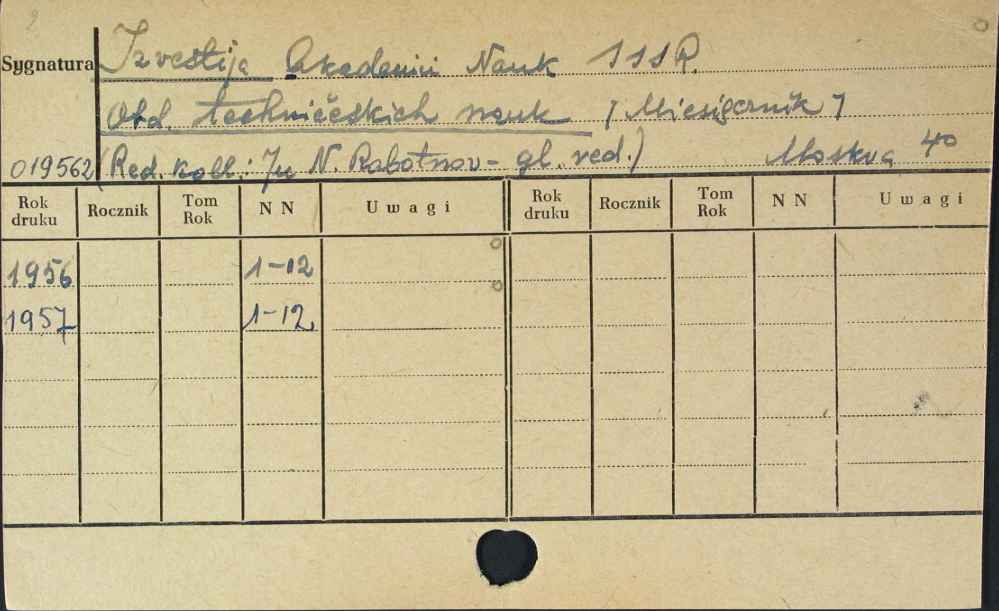 Sygnatura Izvestija Akademii Nauk SSSR.
Otd. techničeskich nauk / Miesięcznik /
019562 (Red. koll.: Ju N. Rabotnov - gl. red.) Moskva 40
Rok druku Rocznik Tom Rok NN Uwagi Rok druku Rocznik Tom Rok NN Uwagi
1956 1-12
1957 1-12